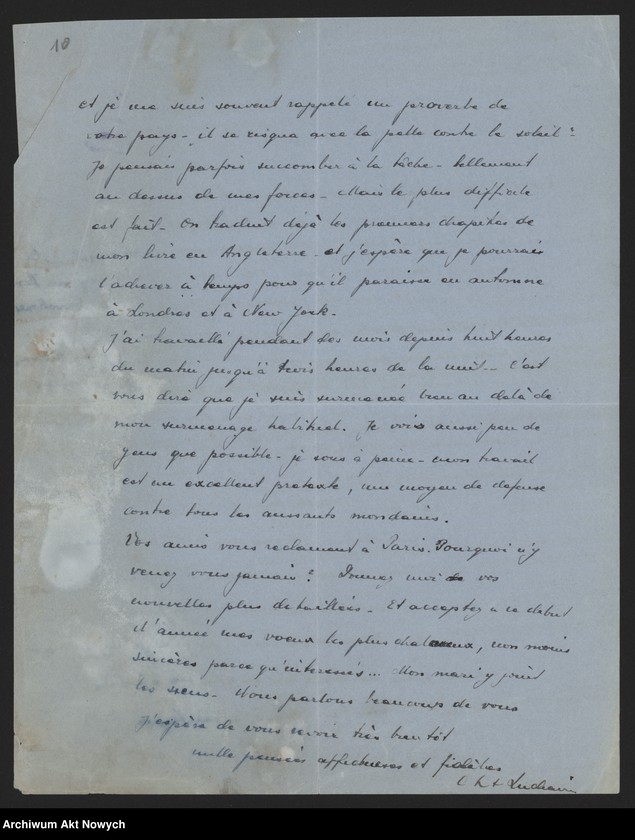 10
et je me suis souvent rappelé un proverbe de
votre pays - il se risqua avec la pelle contre le soleil :
Je pensais parfois succomber à la tâche - tellement
au dessus de mes forces - Mais le plus difficile
est fait - On traduit déjà les premiers chapitres de
mon livre en Angleterre - et j'espère que je pourrais
l'achever à temps pour qu'il paraisse en automne
à Londres et à New York -
J'ai travaillé pendant des mois depuis huit heures
du matin jusqu'à trois heures de la nuit... C'est
vous dire que je suis surmenée bien au delà de
mon surmenage habituel. Je vois aussi peu de
gens que possible - je sors à peine - mon travail
est un excellent pretexte, un moyen de defense
contre tous les mondains.
Vos amis vous reclament à Paris. Pourquoi n'y
venez vous jamais ? Donnez moi de vos
nouvelles plus detaillées - Et acceptez a ce debut
d'année mes voeux les plus, non moins
sincères parce qu'interessés... Mon mari y joint
les siens - Nous parlons beaucoup de vous
J'espère de vous revoir très bientôt
mille pensées affectueuses et fidèles
Archiwum Akt Nowych